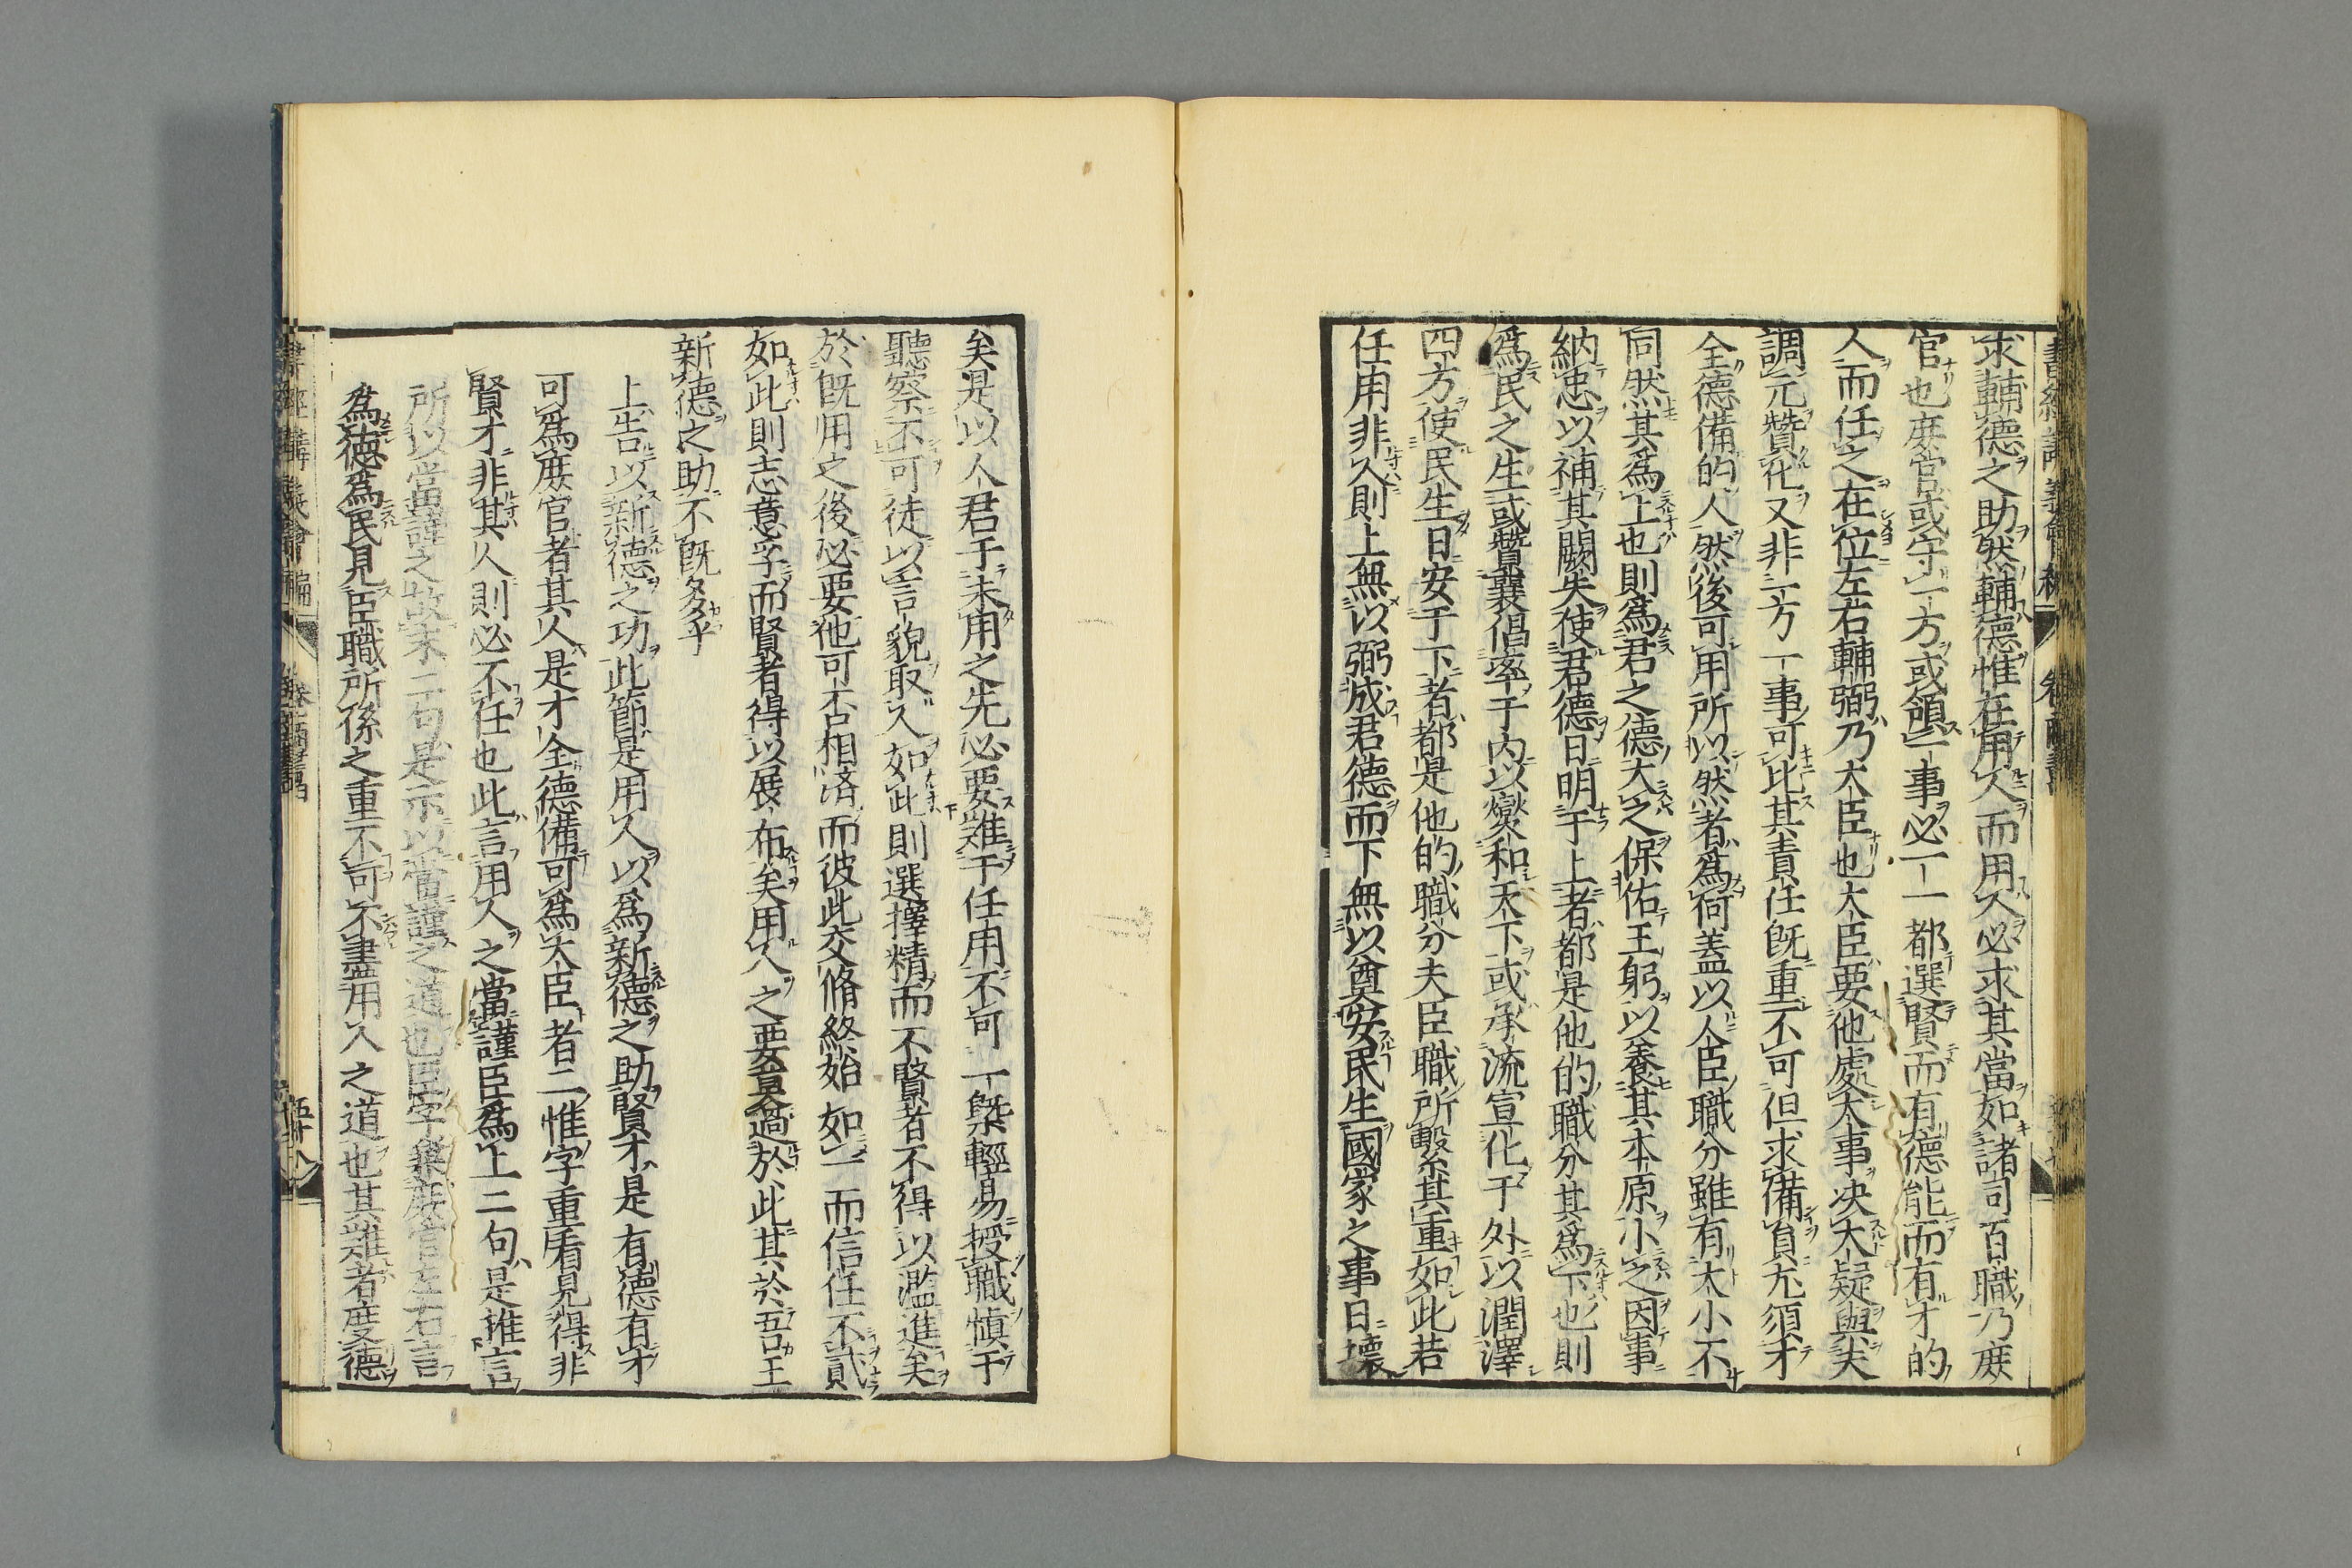 求輔德之助然輔德惟在用人而用人必求其當如諸司百職乃庶
官也庶官或守一方或領一事必一一都選賢而有德能而有才的
人而任之在位左右輔弼乃大臣也大臣要他處大事决大疑與夫
調元贊化又非一方一事可此其責任旣重不可但求備員尤須才
全德備的人然後可用所以然者爲何蓋以人臣職分雖有大小不
同然其爲上也則爲君之德大之保佑王躬以養其本原小之因事
納忠以補其闕失使君德日明于上者都是他的職分其爲下也則
爲民之生或贊襄倡率于内以燮和天下或承流宣化于外以潤澤
四方使民生日安于下者都是他的職分夫臣職所繫其重如此若
任用非人則上無以弼成君德而下無以奠安民生國家之事日壞
矣是以人君于未用之先必要難于任用不可一槩輕易授職愼于
聽察不可徒以言貌取人如此則選擇精而不賢者不得以濫進矣
於旣用之後必要他可否相済而彼此交脩終始如一而信任不貳
如此則志意孚而賢者得以展布矣用人之要莫過於此其於吾王
新德之助不旣多乎
上告以新德之功此節是用人以爲新德之助賢才是有德有才
可爲庶官者其人是才全德備可爲大臣者二惟字重看見得非
賢才非其人則必不任也此言用人之當謹臣爲上二句是推言
所以當謹之故末二句是示以當謹之道也臣字兼庶官左右言
爲德爲民見臣職所係之重不可不盡用人之道也其難者度德
書經講義會編
卷
商書